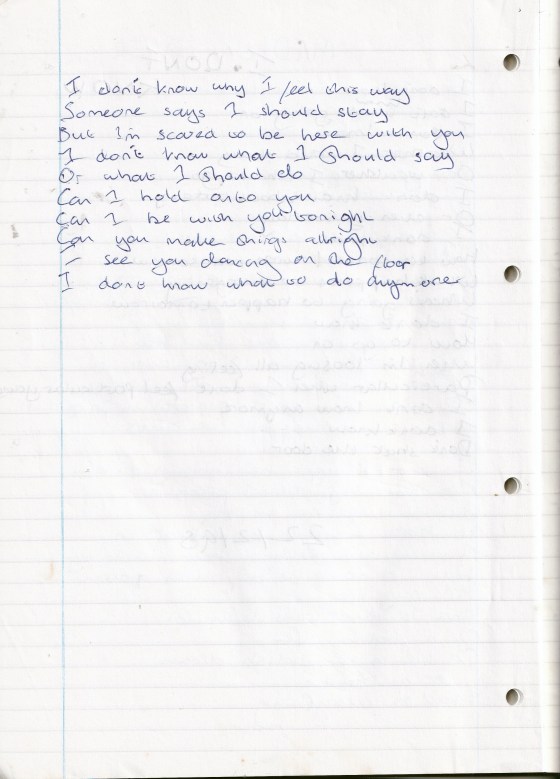 I don't know why I feel this way
Someone says I should stay
But I'm scared to be here with you
I don't know what I should say
Or what I should do
Can I hold onto you
Can I be with you tonight
Can you make things allright
I see you dancing on the floor
I dont know what to do anymore